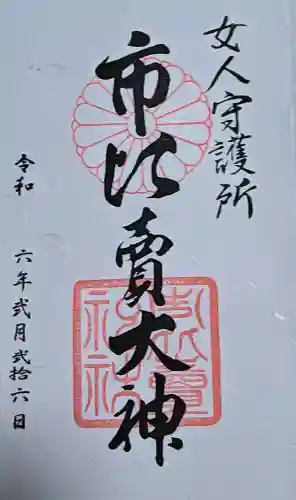 女人守護所
市比賣大神
令和 六年 弐月弐拾六日